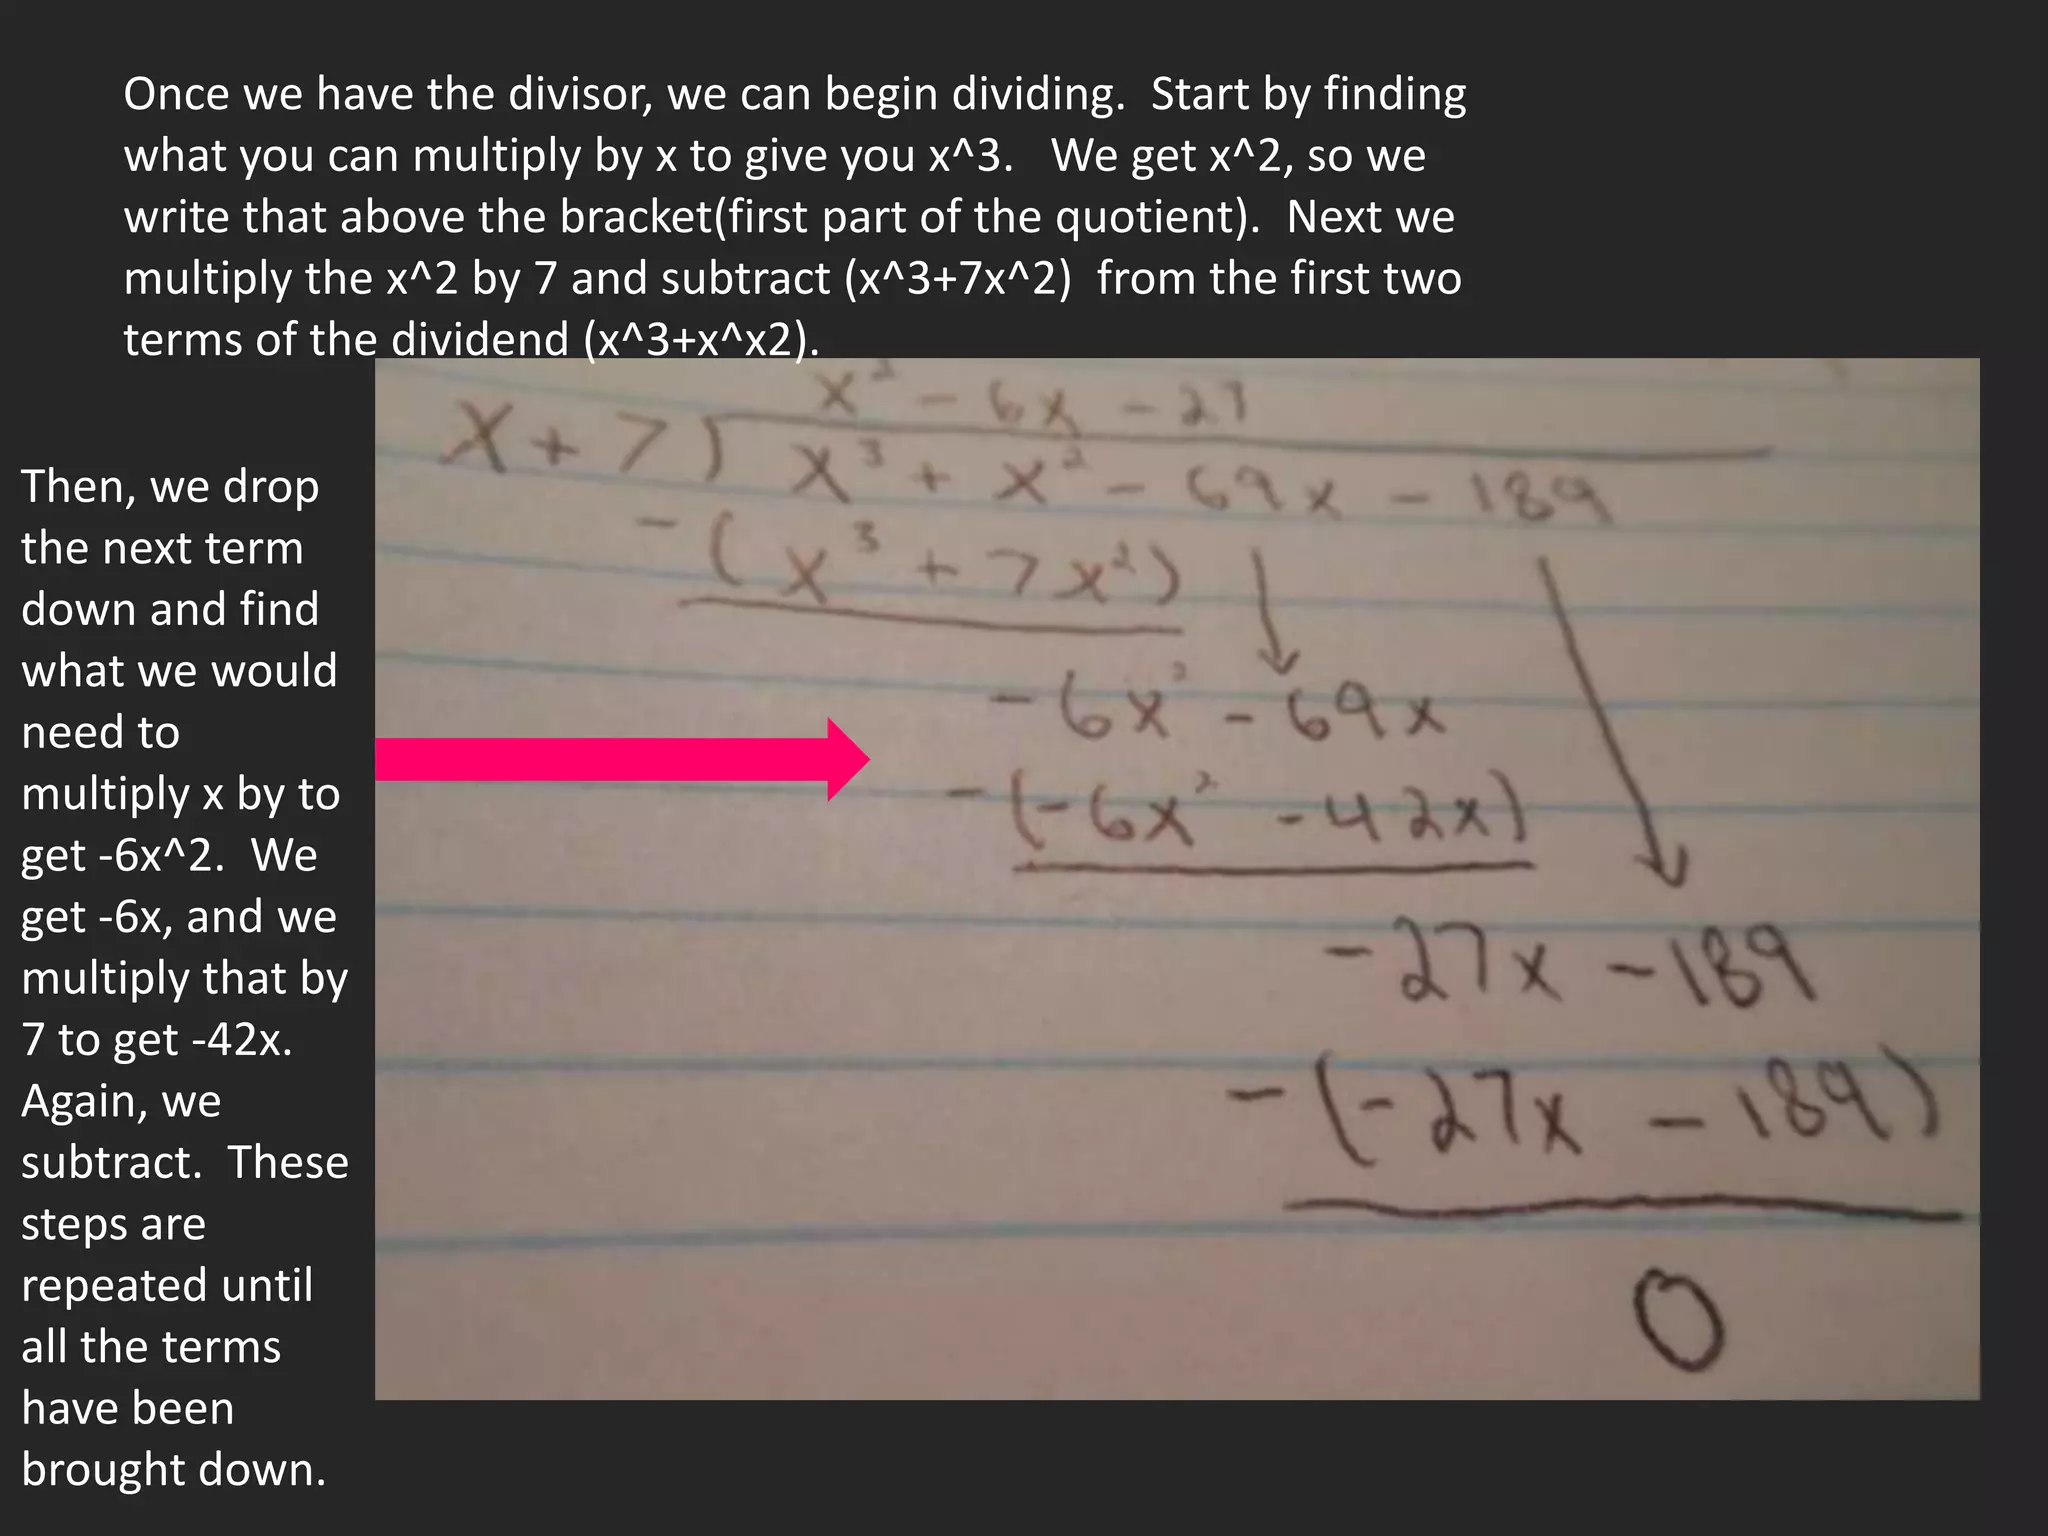 Once we have the divisor, we can begin dividing.  Start by finding
what you can multiply by x to give you x^3.   We get x^2, so we
write that above the bracket(first part of the quotient).  Next we
multiply the x^2 by 7 and subtract (x^3+7x^2)  from the first two
terms of the dividend (x^3+x^x2).
Then, we drop
the next term
down and find
what we would
need to
multiply x by to
get -6x^2.  We
get -6x, and we
multiply that by
7 to get -42x.
Again, we
subtract.  These
steps are
repeated until
all the terms
have been
brought down.
x² - 6x - 27
x + 7) x³ + x² - 69x - 189
-(x³ + 7x²)
-6x² - 69x
-(-6x² - 42x)
-27x - 189
-(-27x - 189)
0